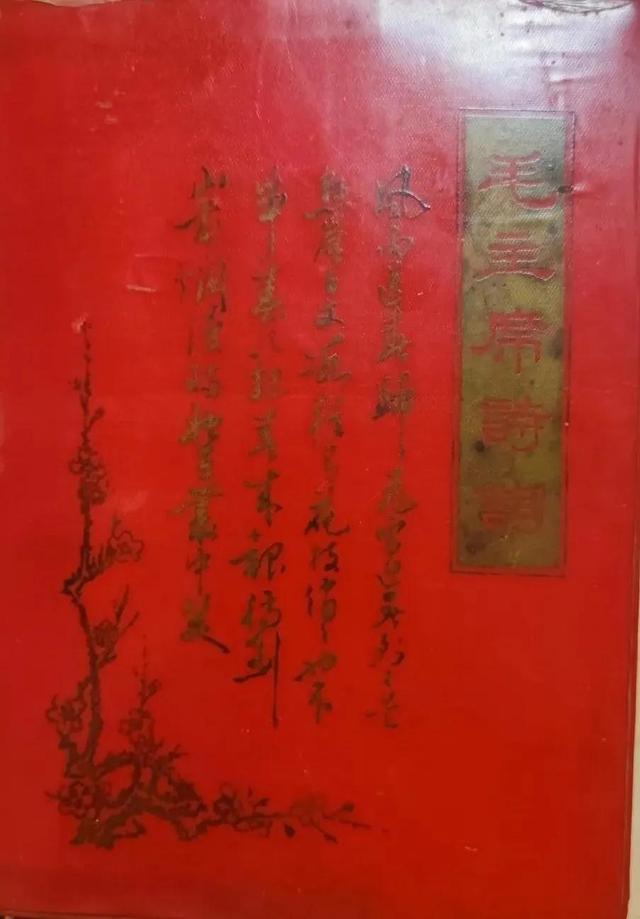 毛主席詩詞
風雨送春歸飛雪迎春到已是
懸崖百丈冰猶有花枝俏俏也不
爭春只把春來報待到
山花爛漫時她在叢中笑